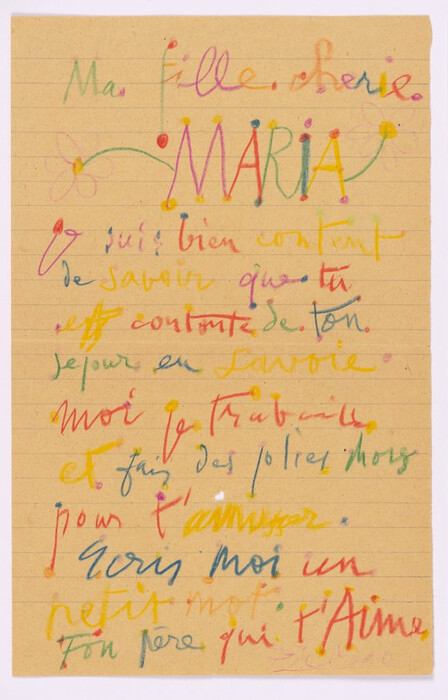 Ma. fille. cherie.
MARIA
Je suis bien content
de savoir que tu
es contente de ton.
sejour en Savoie.
moi je travaille
et fais des jolies
pour t'amuser.
Ecris moi un
petit mot.
Ton père qui t'Aime